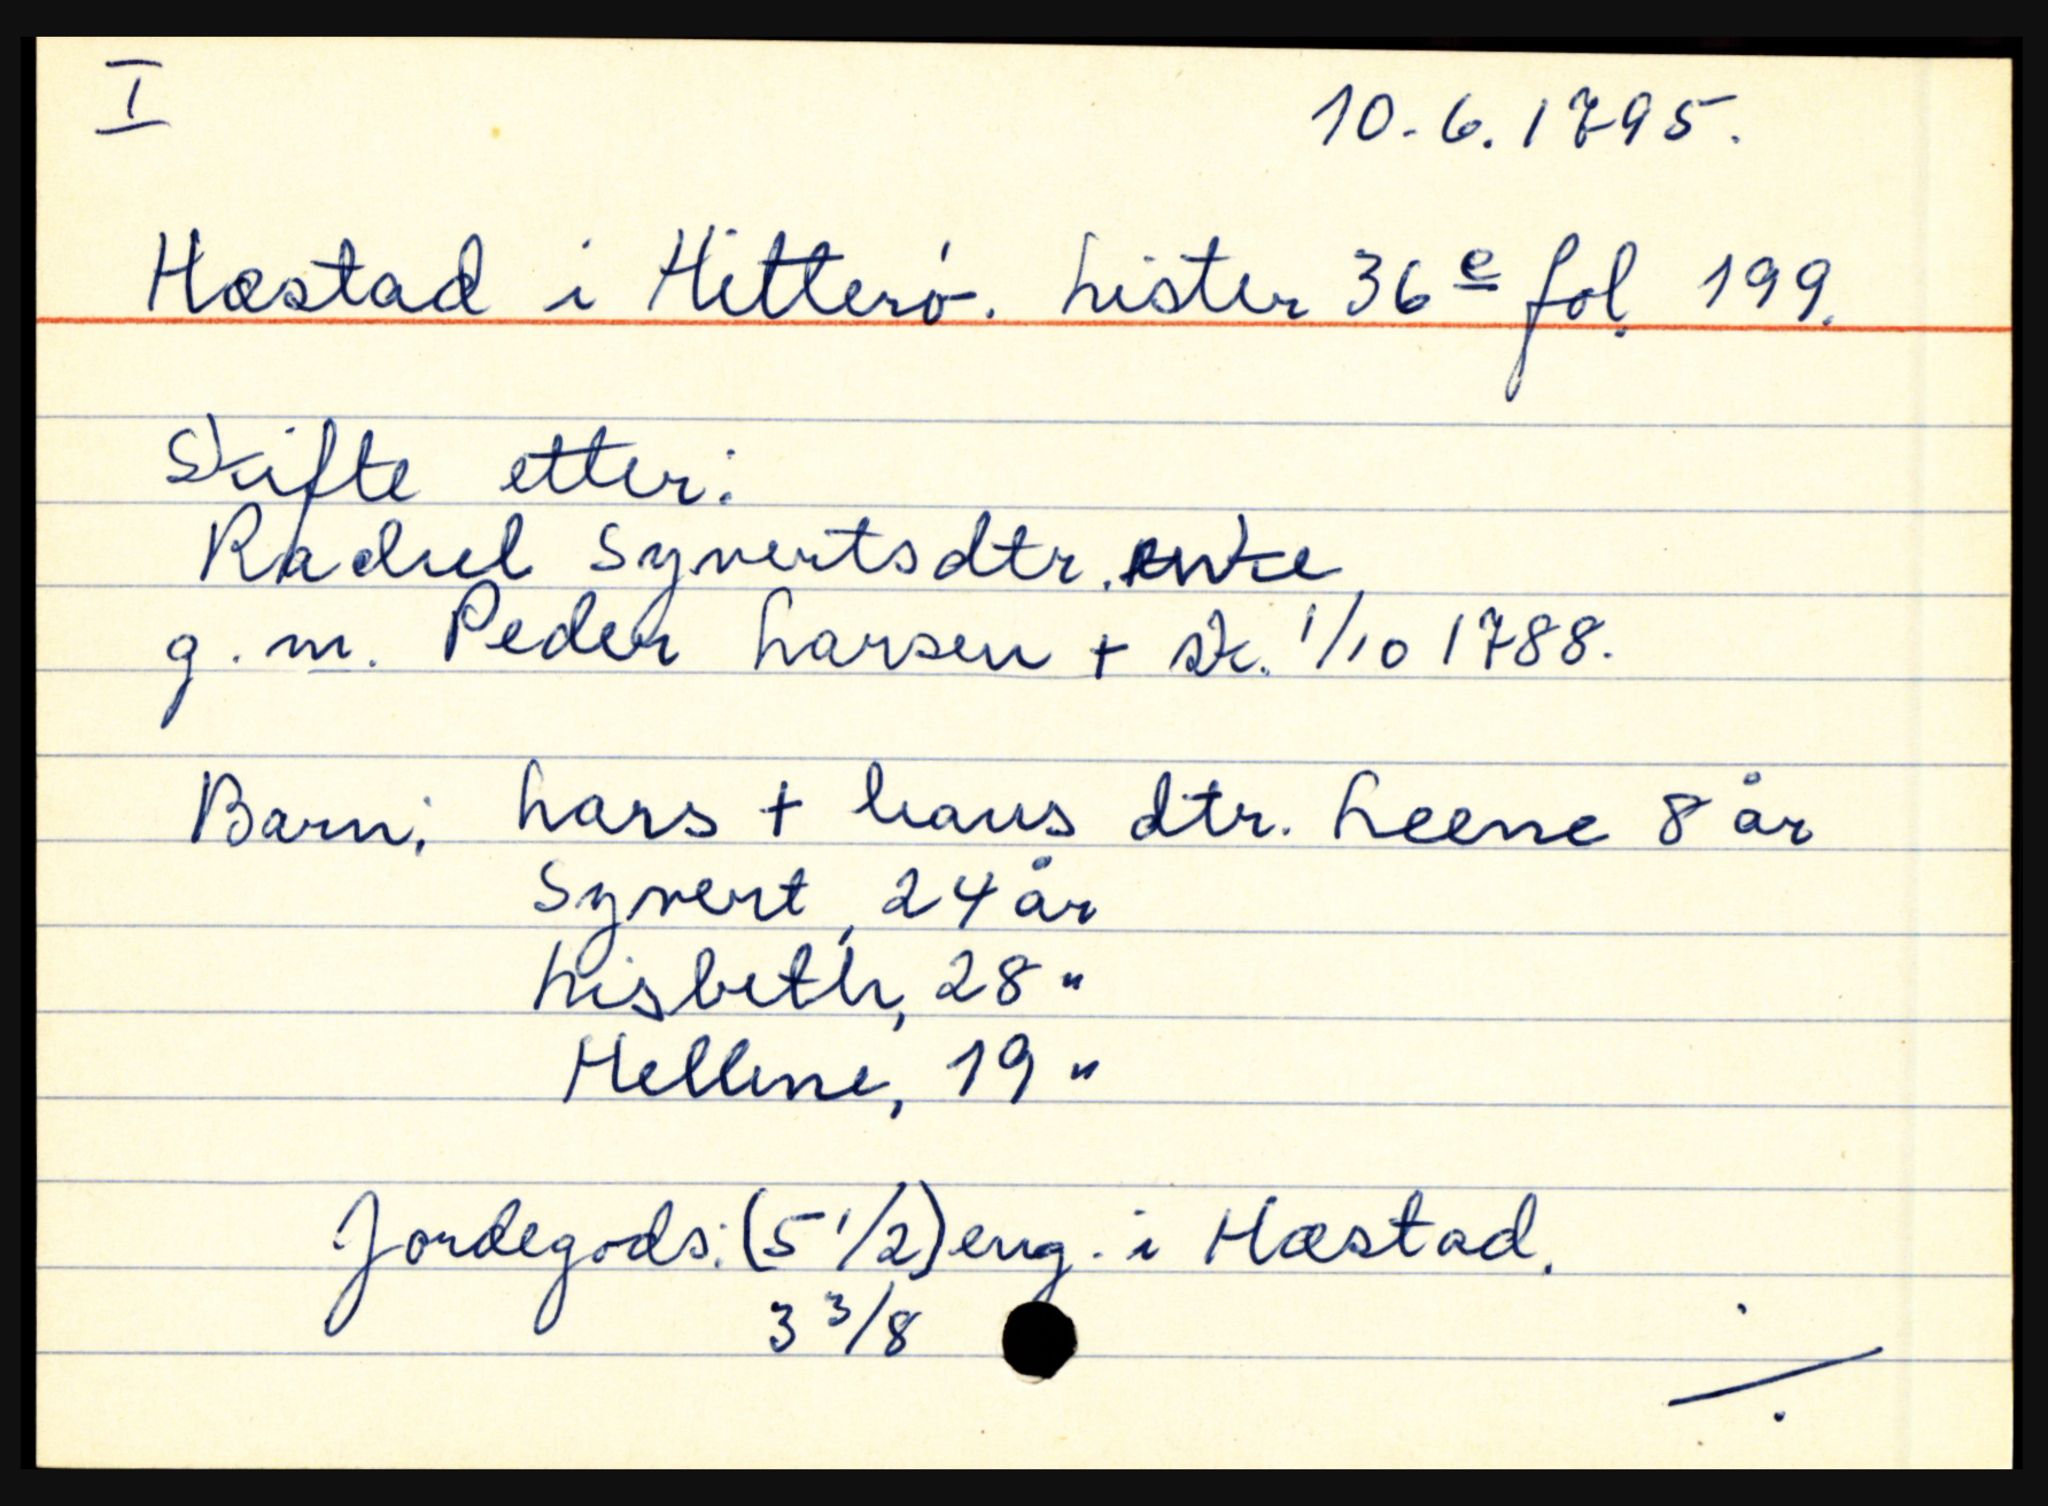 I
10.6.1795.
Hæstad i Hitterö. Lister 36 e fol. 199.
Skifte etter:
Rachel Syvertsdtr. enke
g.m. Peder Larsen + sk. 1/10 1788.
Barn: Lars + hans dtr. Leene 8 år
Syvert, 24 år
Lisbeth, 28 "
Hellene, 19 "
Jordegods: (5 1/2) eng. i Hæstad.
3 3/8